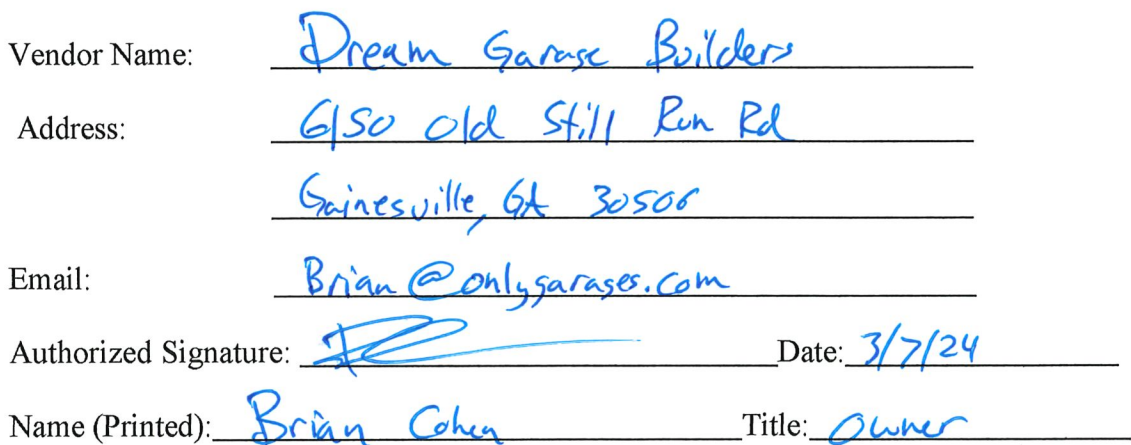 Vendor Name: Dream Garage Builders
Address: 6150 Old Still Run Rd
Gainesville, GA 30506
Email: Brian@onlygarages.com
Authorized Signature: Date: 3/7/24
Name (Printed): Brian Cohen Title: Owner